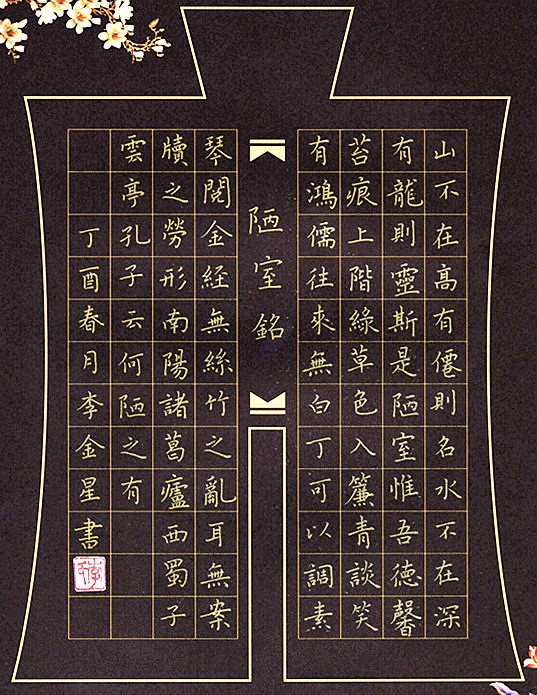 山不在高有僊則名水不在深
有龍則靈斯是陋室惟吾德馨
苔痕上階綠草色入簾青談笑
有鴻儒往來無白丁可以調素
陋室銘
琴閱金経無絲竹之亂耳無案
牘之勞形南陽諸葛廬西蜀子
雲亭孔子云何陋之有
丁酉春月李金星書